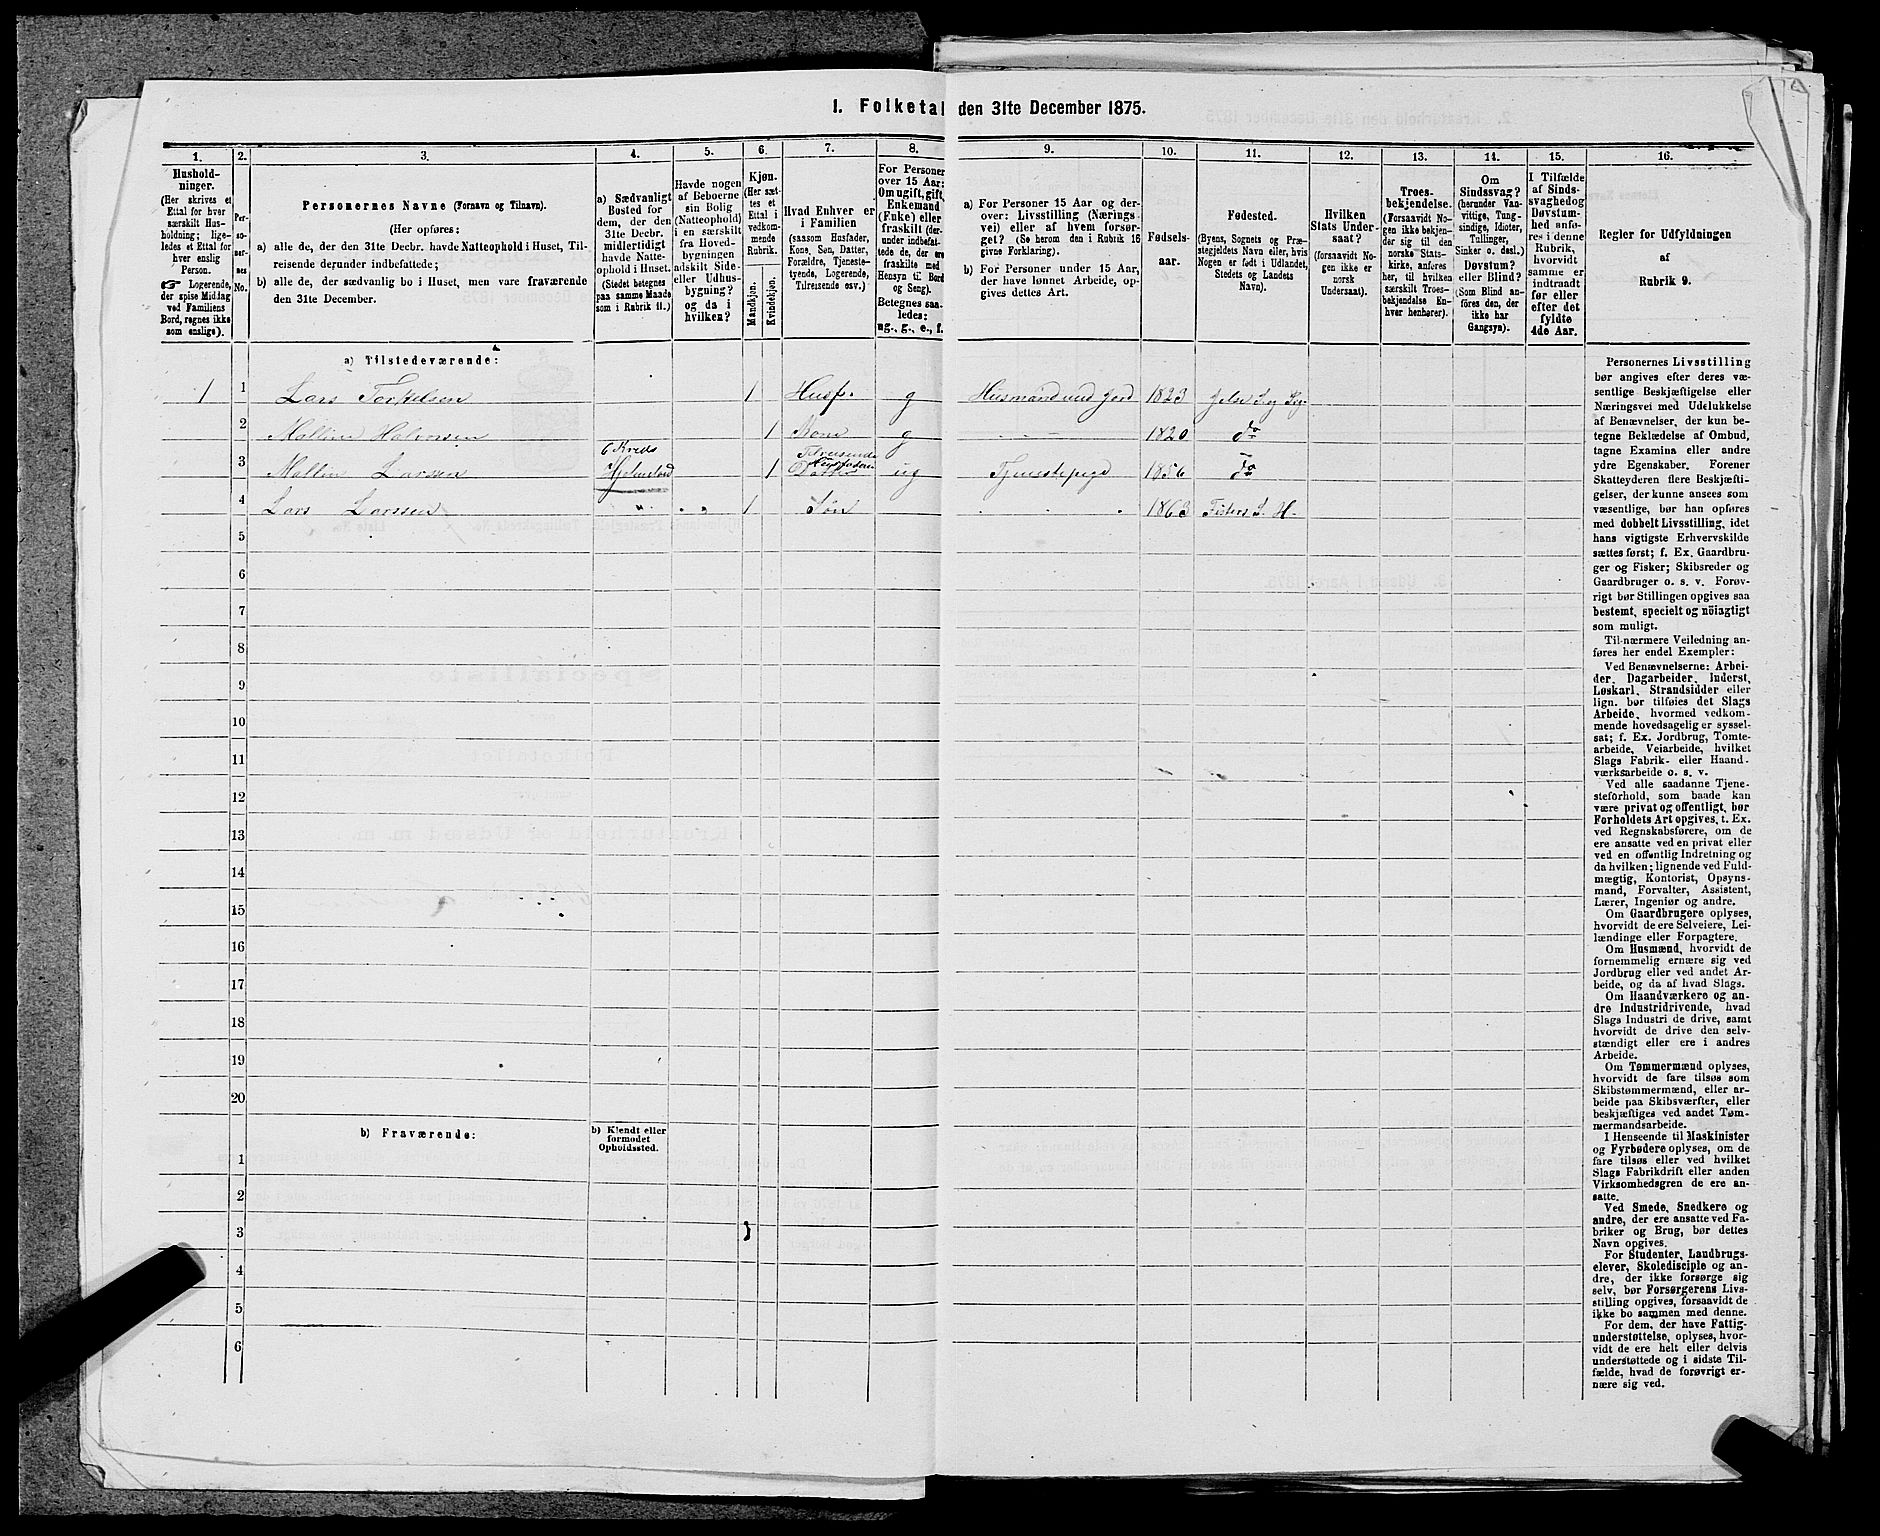 1. Folketal den 31te December 1875.
1.
Hushold-
ninger.
(Her skrives et
Ettal for hver
særskilt Hus-
holdning; lige-
ledes et Ettal for
hver enslig
Person.
☞ Logerende,
der spise Middag
ved Familiens
Bord, regnes ikke
som enslige).
2.
Per-
so-
ner-
nes
No.
3.
Personernes Navne (Fornavn og Tilnavn).
(Her opføres:
a) alle de, der den 31te Decbr. havde Natteophold i Huset, Til-
reisende derunder indbefattede;
b) alle de, der sædvanlig bo i Huset, men vare fraværende
den 31te December.
4.
a) Sædvanligt
Bosted for
dem, der den
31te Decbr.
midlertidigt
havde Natte-
ophold i Huset.
(Stedet betegnes
paa samme Maade
som i Rubrik 11.)
5.
Havde nogen
af Beboerne
sin Bolig
(Natteophold)
i en særskilt
fra Hoved-
bygningen
adskilt Side-
eller Udhus-
bygning?
og da i
hvilken?
6.
Kjøn.
(Her sæt-
tes et
Ettal i
vedkom-
mende
Rubrik.
Mandkjøn.
Kvindekjøn.
7.
Hvad Enhver er
i Familien
(saasom Husfader,
Kone, Søn, Datter,
Forældre, Tjeneste-
tyende, Logerende,
Tilreisende osv.)
8.
For Personer
over 15 Aar:
Om ugift, gift,
Enkemand
(Enke) eller
fraskilt (der-
under indbefat-
tede de, der ere
fraskilte med
Hensyn til Bord
og Seng).
Betegnes saa-
ledes:
ug., g., e., f.
9.
a) For Personer 15 Aar og der-
over: Livsstilling (Nærings-
vei) eller af hvem forsør-
get? (Se herom den i Rubrik 16
givne Forklaring).
b) For Personer under 15 Aar,
der have lønnet Arbeide, op-
gives dettes Art.
10.
Fødsels-
aar.
11.
Fødested.
(Byens, Sognets og Præ-
stegjeldets Navn eller, hvis
Nogen er født i Udlandet,
Stedets og Landets
Navn).
12.
Hvilken
Stats Under-
saat?
(forsaavidt No-
gen ikke er
norsk
Undersaat).
13.
Troes-
bekjendelse.
(Forsaavidt No-
gen ikke bekjen-
der sig til den
norske Stats-
kirke, anføres
her, til hvilken
særskilt Troes-
bekjendelse En-
hver henhører).
14.
Om
Sindssvag?
(herunder Van-
vittige, Tung-
sindige, Idioter,
Tullinger,
Sinker o. desl.)
Døvstum?
eller Blind?
(Som Blind an-
føres den, der
ikke har
Gangsyn).
15.
I Tilfælde
af Sinds-
svaghed og
Døvstum-
hed anfø-
res i denne
Rubrik,
hvorvidt
samme er
indtraadt
før eller
efter det
fyldte
4de Aar.
16.
Regler for Udfyldningen
af
Rubrik 9.
a) Tilstedeværende:
1 1 Lars Torkelsen 1 Husf. g Husmand med Jord 1823 Jelse
2 Malline Halvorsen 1 Kone g 1820 do
6 Kreds Tilreisende
3 Mallin Larsen 1 Datter ug Tjenestepige 1856 do
4 Lars Larssen " " " 1 Søn 1863 Fisters S. H.
5
6
7
8
9
10
11
12
13
14
15
16
17
18
19
20
b) Fraværende:
b) Kjendt eller
formodet
Opholdssted.
1
2
3
4
5
6
Personernes Livsstilling
bør angives efter deres væ-
sentlige Beskjæftigelse eller
Næringsvei med Udelukkelse
af Benævnelser, der kun be-
tegne Beklædelse af Ombud,
tagne Examina eller andre
ydre Egenskaber. Forener
Skatteyderen flere Beskjæfti-
gelser, der kunne ansees som
væsentlige, bør han opføres
med dobbelt Livsstilling, idet
hans vigtigste Erhvervskilde
sættes først; f. Ex. Gaardbru-
ger og Fisker; Skibsreder og
Gaardbruger o. s. v. Forøv-
rigt bør Stillingen opgives saa
bestemt, specielt og nöiagtigt
som muligt.
Til nærmere Veiledning an-
føres her endel Exempler:
Ved Benævnelserne: Arbei-
der, Dagarbeider, Inderst,
Løskarl, Strandsidder eller
lign. bør tilføies det Slags
Arbeide, hvormed vedkom-
mende hovedsagelig er syssel-
sat; f. Ex. Jordbrug, Tomte-
arbeide, Veiarbeide, hvilket
Slags Fabrik- eller Haand-
værksarbeide o. s. v.
Ved alle saadanne Tjene-
steforhold, som baade kan
være privat og offentligt, bør
Forholdets Art opgives, t. Ex.
ved Regnskabsførere, om de
ere ansatte ved en privat eller
ved en offentlig Indretning og
da hvilken; lignende ved Fuld-
mægtig, Kontorist, Opsyns-
mand, Forvalter, Assistent,
Lærer, Ingeniør og andre.
Om Gaardbrugere oplyses,
hvorvidt de ere Selveiere, Lei-
lændinge eller Forpagtere.
Om Husmænd, hvorvidt de
fornemmelig ernære sig ved
Jordbrug eller ved andet Ar-
beide, og da af hvad Slags.
Om Haandværkere og an-
dre Industridrivende, hvad
Slags Industri de drive, samt
hvorvidt de drive den selv-
stændigt eller ere i andres
Arbeide.
Om Tømmermænd oplyses,
hvorvidt de fare tilsøs som
Skibstømmermænd, eller ar-
beide paa Skibsværfter, eller
beskjæftiges ved andet Tøm-
mermandsarbeide.
I Henseende til Maskinister
og Fyrbødere oplyses, om de
fare tilsøs eller ved hvilket
Slags Fabrikdrift eller anden
Virksomhedsgren de ere an-
satte.
Ved Smede, Snedkere og
andre, der ere ansatte ved Fa-
briker og Brug, bør dettes
Navn opgives.
For Studenter, Landbrugs-
elever, Skoledisciple og an-
dre, der ikke forsørge sig
selv, bør Forsørgerens Livs-
stilling opgives, forsaavidt de
ikke bo sammen med denne.
For dem, der have Fattig-
understøttelse, oplyses, hvor-
vidt de ere helt eller delvis
understøttede og i sidste Til-
fælde, hvad de forøvrigt er-
nære sig ved.